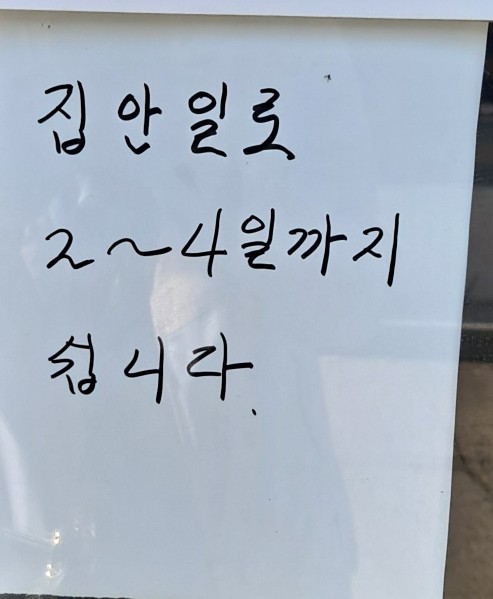 집안일로
2~4일까지
쉽니다.